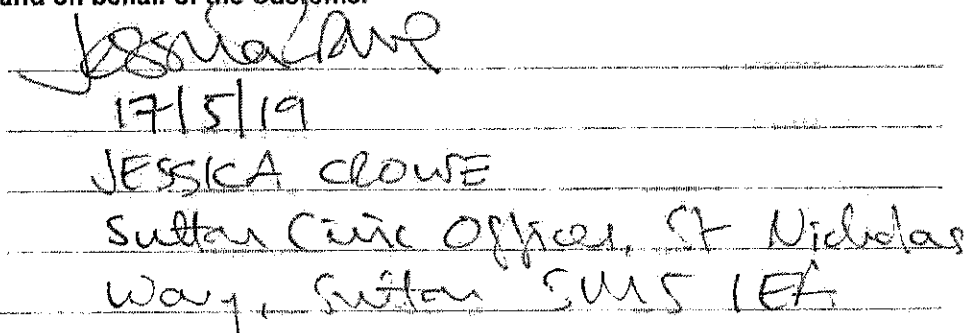 and on behalf of the Customer
Jessica Crowe
17/5/19
JESSICA CROWE
Sutton Civic Offices, St Nicholas
Way, Sutton SM5 1EA